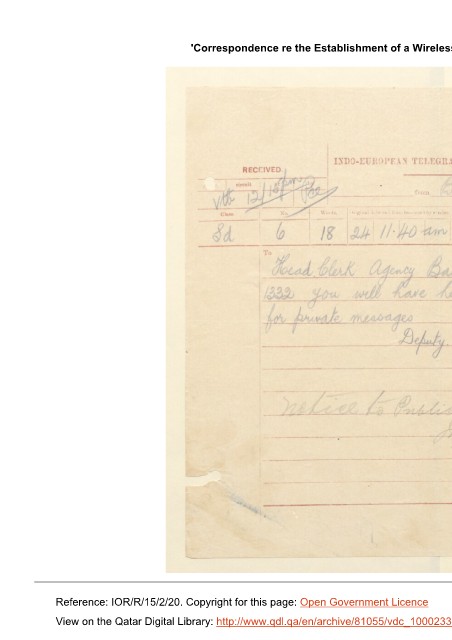 'Correspondence re the Establishment of a Wireless
INDO-EUROPEAN TELEGRA
RECEIVED
from
Class
No.
Words
Sd 6 18 24 11.40 am
To
Head Clerk Agency Ba
1332 you will have
for private messages
Deputy.
Notice to Public
Reference: IOR/R/15/2/20. Copyright for this page: Open Government Licence
View on the Qatar Digital Library: http://www.qdl.qa/en/archive/81055/vdc_1000233